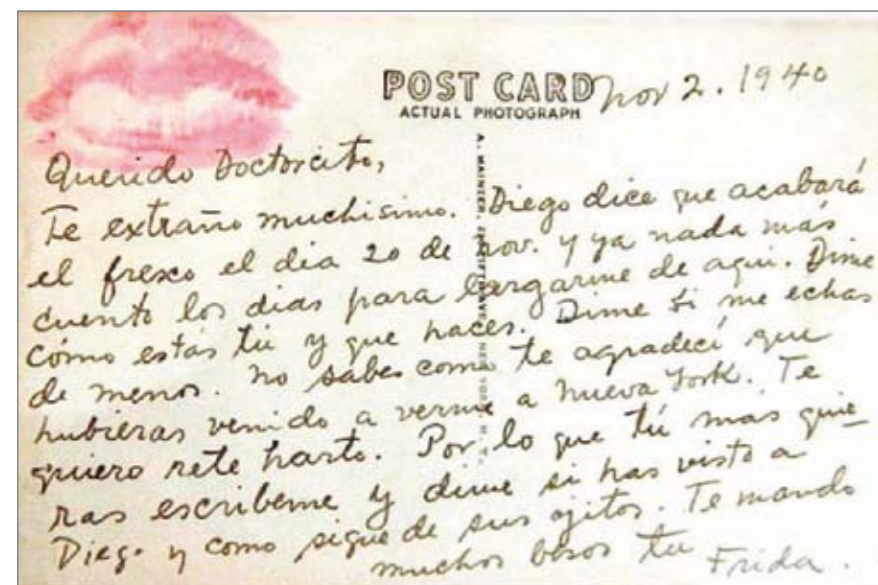 POST CARD
ACTUAL PHOTOGRAPH
Nov 2. 1940
Querido Doctorcito,
Te extraño muchisimo. Diego dice que acabará
el fresco el dia 20 de nov. y ya nada más
cuento los dias para largarme de aqui. Dime
cómo estás tú y que haces. Dime si me echas
de menos. no sabes como te agradecí que
hubieras venido a verme a Nueva York. Te
quiero rete harto. Por lo que tú más quie-
ras escribeme y dime si has visto a
Diego y como sigue de sus ojitos. Te mando
muchos besos tu Frida.